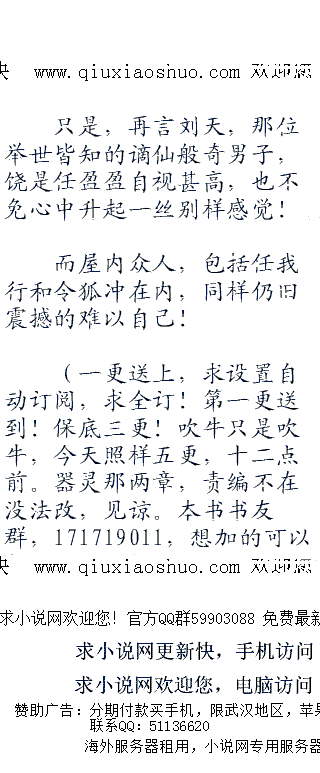 快 www.qiuxiaoshuo.com 欢迎您
只是，再言刘天，那位
举世皆知的谪仙般奇男子，
饶是任盈盈自视甚高，也不
免心中升起一丝别样感觉！
而屋内众人，包括任我
行和令狐冲在内，同样仍旧
震撼的难以自己！
（一更送上，求设置自
动订阅，求全订！第一更送
到！保底三更！吹牛只是吹
牛，今天照样五更，十二点
前。器灵那两章，责编不在
没法改，见谅。本书书友
群，171719011，想加的可以
快 www.qiuxiaoshuo.com 欢迎您
求小说网欢迎您！官方QQ群59903088 免费最新
求小说网更新快，手机访问
求小说网欢迎您，电脑访问
赞助广告：分期付款买手机，限武汉地区，苹果
联系QQ：51136620
海外服务器租用，小说网专用服务器